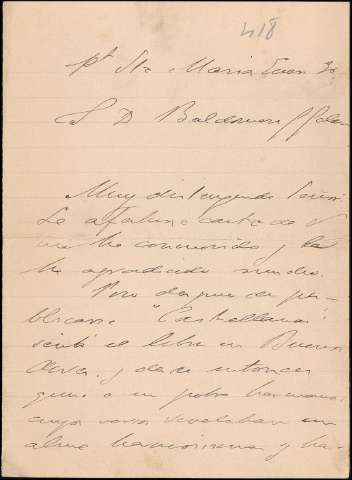 418
Pto Sta Maria Enero 30
S. D. Baldomero
Muy distinguido Señor
La afectuosa carta de V.
me ha conmovido y la
he agradecido mucho.
Poco despues de pu-
blicarse "Castellanas"
el libro en Buenos
Aires, y desde entonces
quise a un poeta hermano
cuyos versos revelaban un
alma hermosisima y